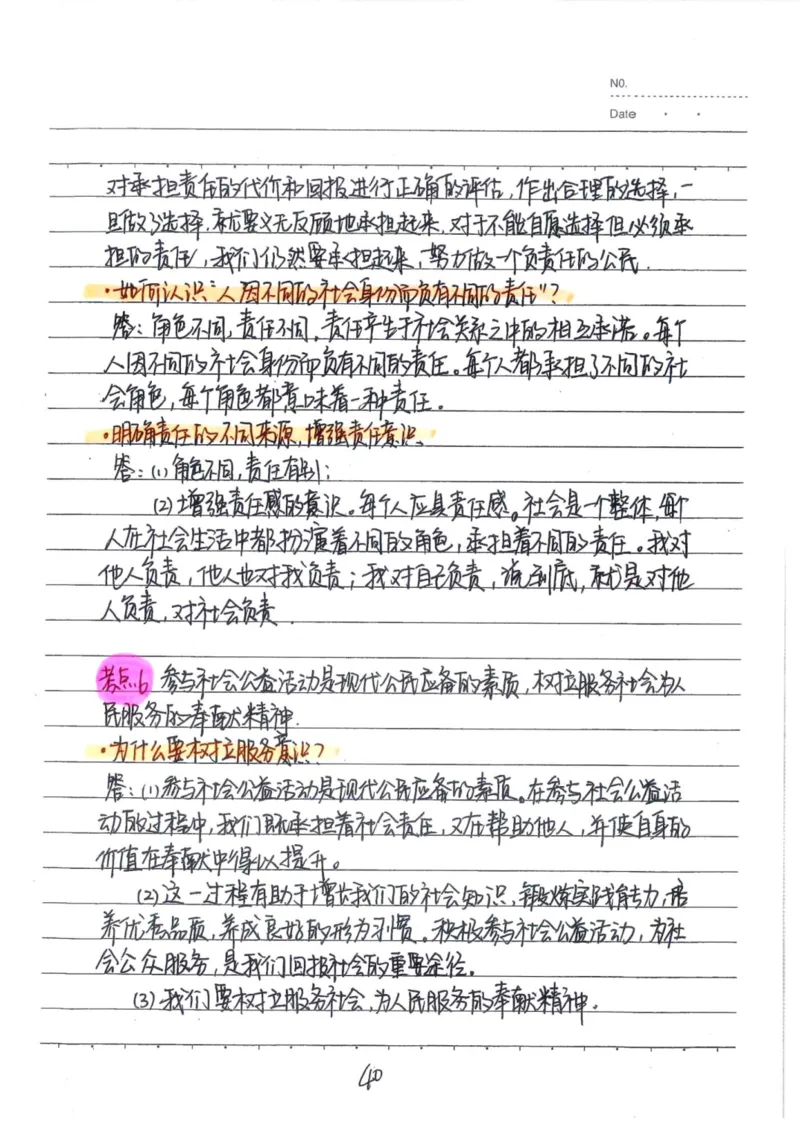 NO.
Date
对承担责任的代价和回报进行正确的评估，作出合理的选择，一
旦做了选择，就要义无反顾地承担起来，对于不能自愿选择但必须承
担的责任，我们仍然要承担起来，努力做一个负责任的公民.
·如何认识"人因不同的社会身份而负有不同的责任"？
答：角色不同，责任不同，责任产生于社会关系之中的相互承诺。每个
人因不同的社会身份而负有不同的责任。每个人都承担了不同的社
会角色，每个角色都意味着一种责任。
·明确责任的不同来源，增强责任意识。
答：(1)角色不同，责任有别；
(2)增强责任感的意识。每个人应具责任感。社会是一个整体，每个
人在社会生活中都扮演着不同的角色，承担着不同的责任。我对
他人负责，他人也对我负责；我对自己负责，说到底，就是对他
人负责，对社会负责.
考点6 参与社会公益活动是现代公民应备的素质，树立服务社会为人
民服务的奉献精神.
·为什么要树立服务意识？
答：(1)参与社会公益活动是现代公民应备的素质。在参与社会公益活
动的过程中，我们既承担着社会责任，又在帮助他人，并使自身的
价值在奉献中得以提升。
(2)这一过程有助于增长我们的社会知识，锻炼实践能力，培
养优秀品质，养成良好的行为习惯。积极参与社会公益活动，为社
会公众服务，是我们回报社会的重要途径。
(3)我们要树立服务社会，为人民服务的奉献精神.
40